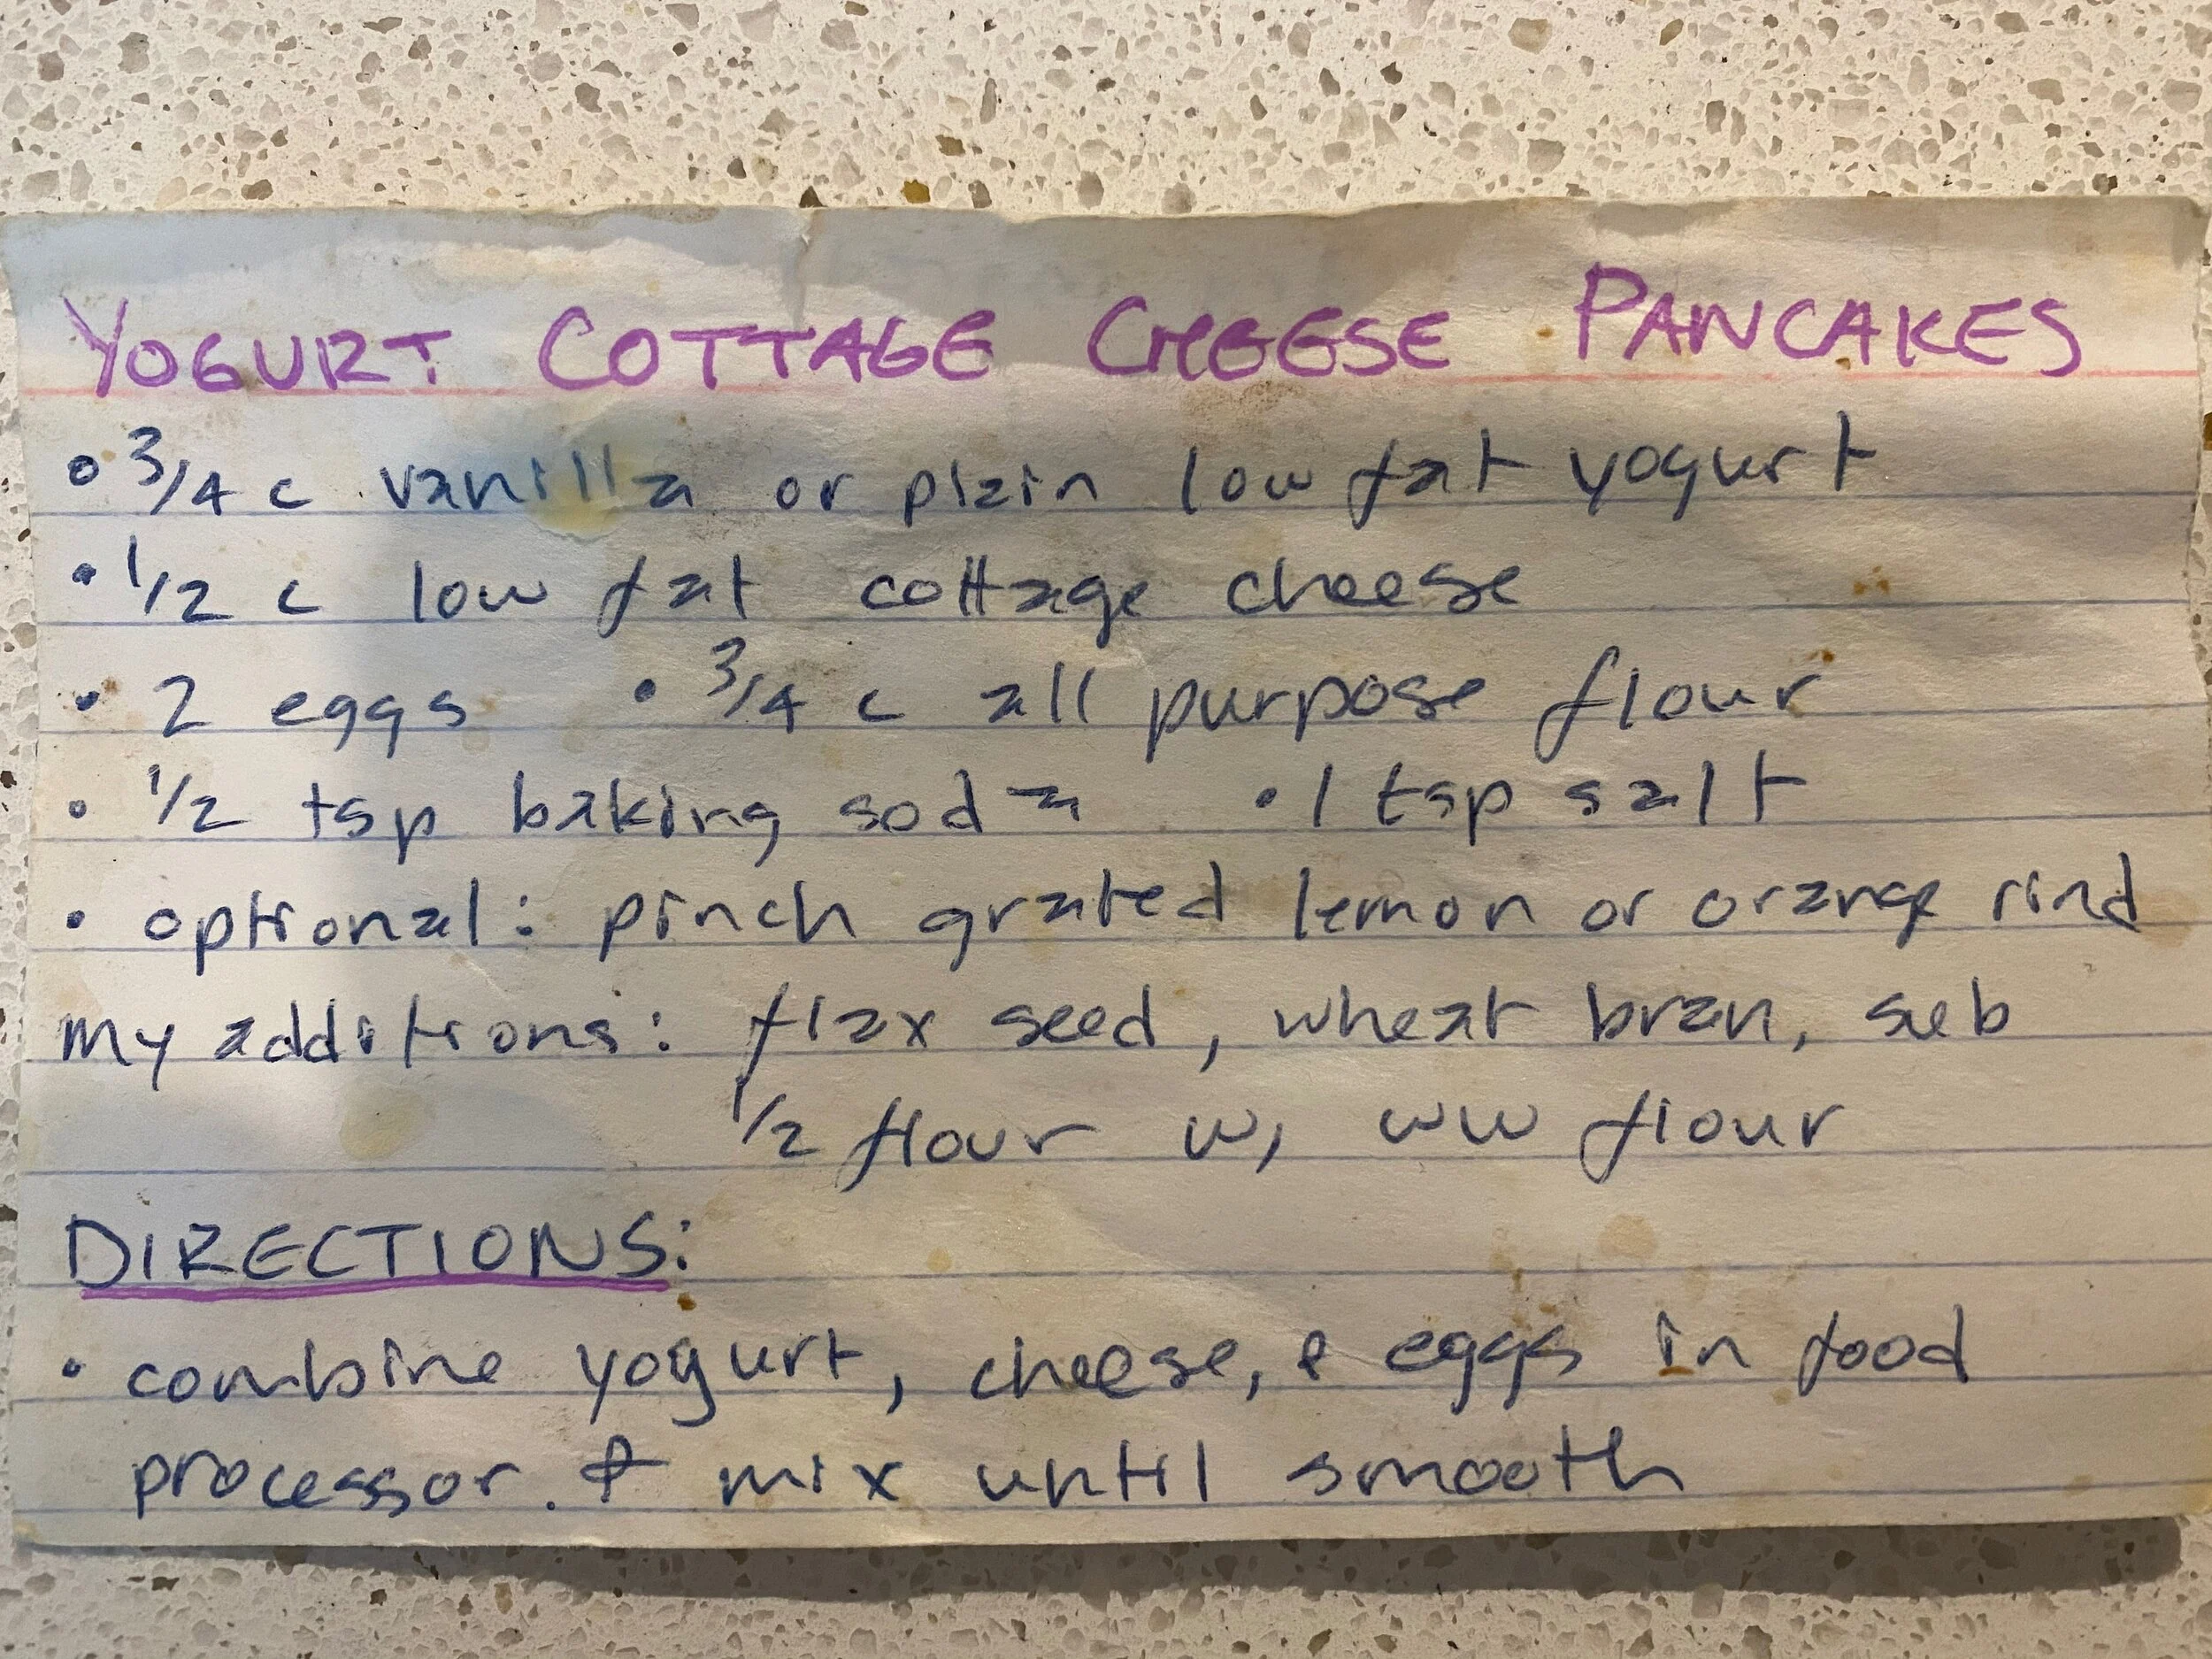 YOGURT COTTAGE CHEESE PANCAKES
• 3/4 c vanilla or plain low fat yogurt
• 1/2 c low fat cottage cheese
• 2 eggs • 3/4 c all purpose flour
• 1/2 tsp baking soda • 1 tsp salt
• optional: pinch grated lemon or orange rind
my additions: flax seed, wheat bran, sub
1/2 flour w/ ww flour
DIRECTIONS:
• combine yogurt, cheese, & eggs in food
processor. & mix until smooth